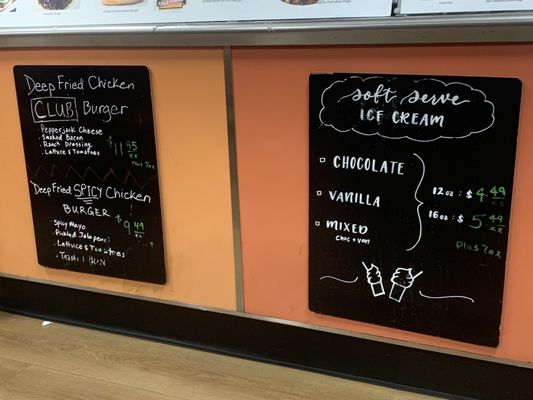 Deep Fried Chicken
CLUB Burger
· Pepperjack Cheese
· Smoked Bacon
· Ranch Dressing
· Lettuce & Tomatoes
$11 45
Plus Tax
Deep Fried SPICY Chicken
BURGER
$9 49
· Spicy Mayo
· Pickled Jalapeno
· Lettuce & Tomatoes
BUN
Soft Serve
ICE CREAM
CHOCOLATE
VANILLA
MIXED
CHOC + VAN
12 oz : $ 4.49
16 oz : $ 5.49
Plus Tax